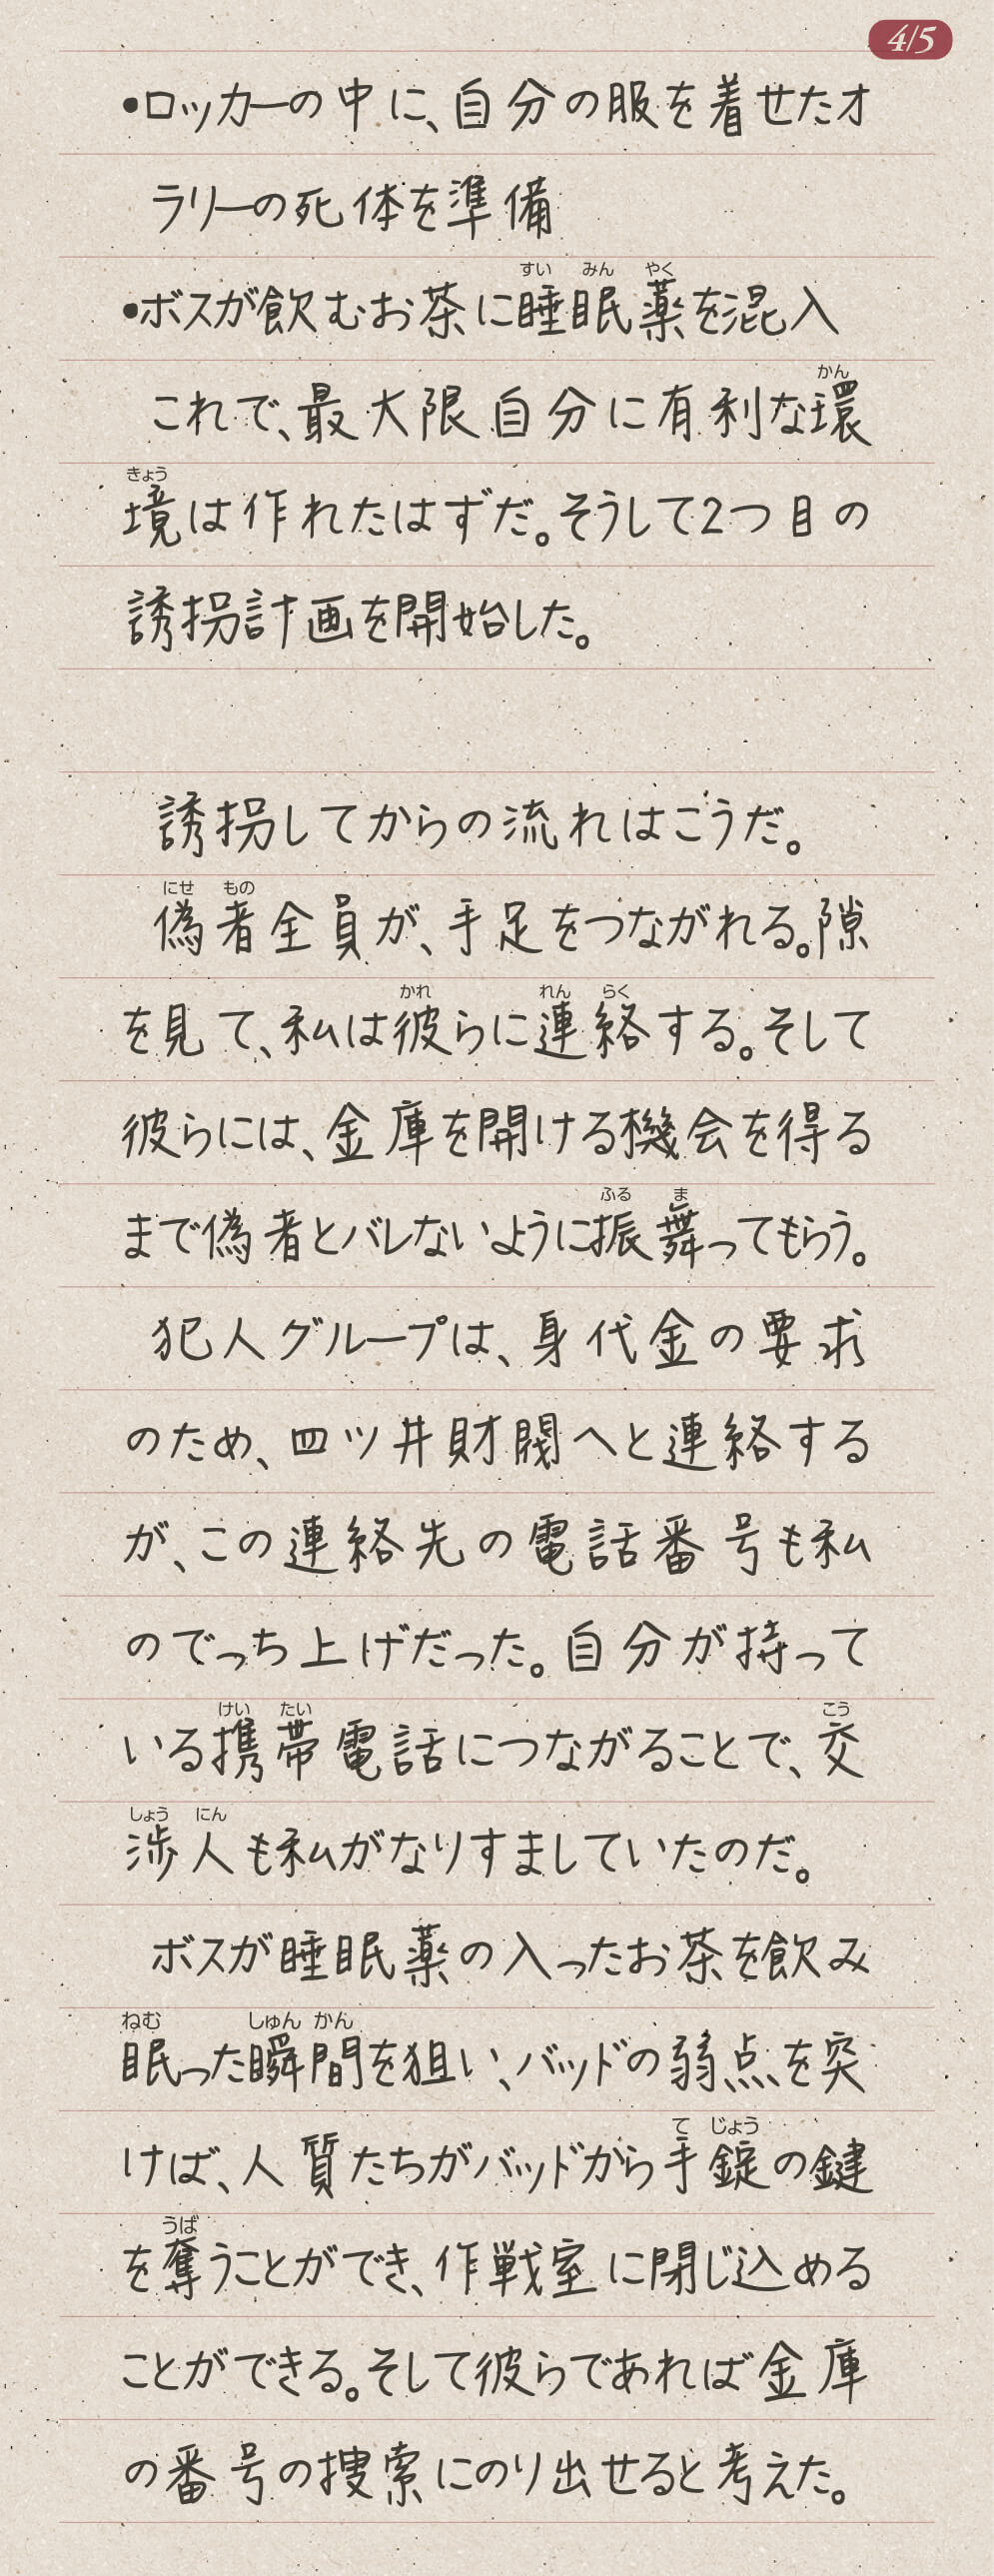 4/5
•ロッカーの中に、自分の服を着せたオ
ラリーの死体を準備
すい みん やく
•ボスが飲むお茶に睡眠薬を混入
かん
これで、最大限自分に有利な環
きょう
境は作れたはずだ。そうして2つ目の
誘拐計画を開始した。
誘拐してからの流れはこうだ。
にせ もの
偽者全員が、手足をつながれる。隙
かれ れん らく
を見て、私は彼らに連絡する。そして
彼らには、金庫を開ける機会を得る
ふる ま
まで偽者とバレないように振舞ってもらう。
犯人グループは、身代金の要求
のため、四ツ井財閥へと連絡する
が、この連絡先の電話番号も私
のでっち上げだった。自分が持って
けい たい こう
いる携帯電話につながることで、交
しょう にん
渉人も私がなりすましていたのだ。
ボスが睡眠薬の入ったお茶を飲み
ねむ しゅん かん
眠った瞬間を狙い、バッドの弱点を突
て じょう
けば、人質たちがバッドから手錠の鍵
うば
を奪うことができ、作戦室に閉じ込める
ことができる。そして彼らであれば金庫
の番号の捜索にのり出せると考えた。